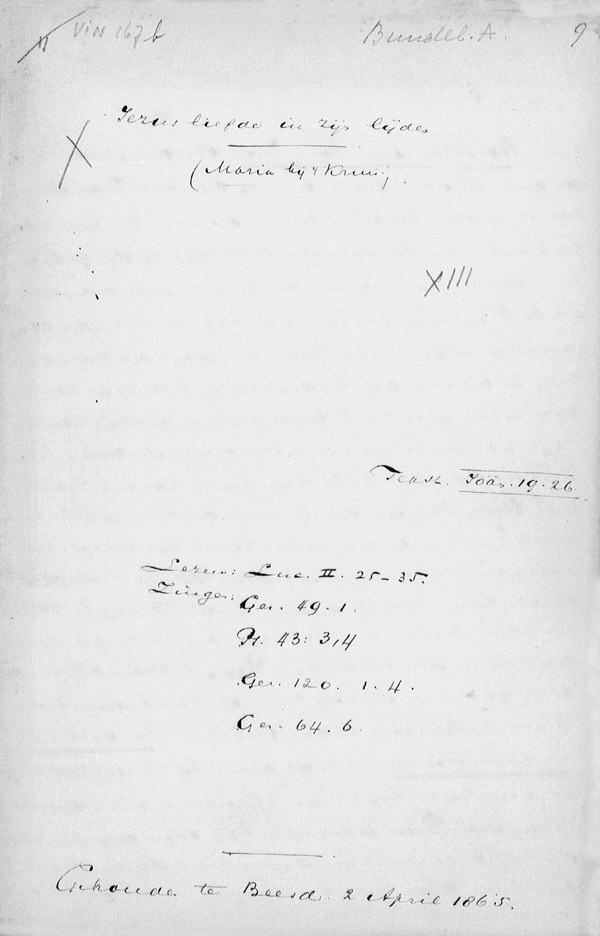 VIN 167b
Bundel. A. 9
Jezus liefde in zijn lijden
(Maria bij 't Kruis)
XIII
Tekst. Joan. 19. 26.
Lezen: Luc. II. 25-35.
Zingen: Gez. 49. 1.
Ps. 43: 3,4
Gez. 120. 1. 4.
Gez. 64. 6.
Gehouden te Beesd. 2 April 1865.